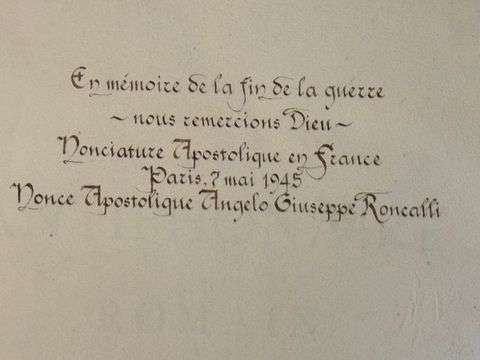 En mémoire de la fin de la guerre
~ nous remercions Dieu ~
Nonciature Apostolique en France
Paris, 7 mai 1945
Nonce Apostolique Angelo Giuseppe Roncalli
ROMAIN